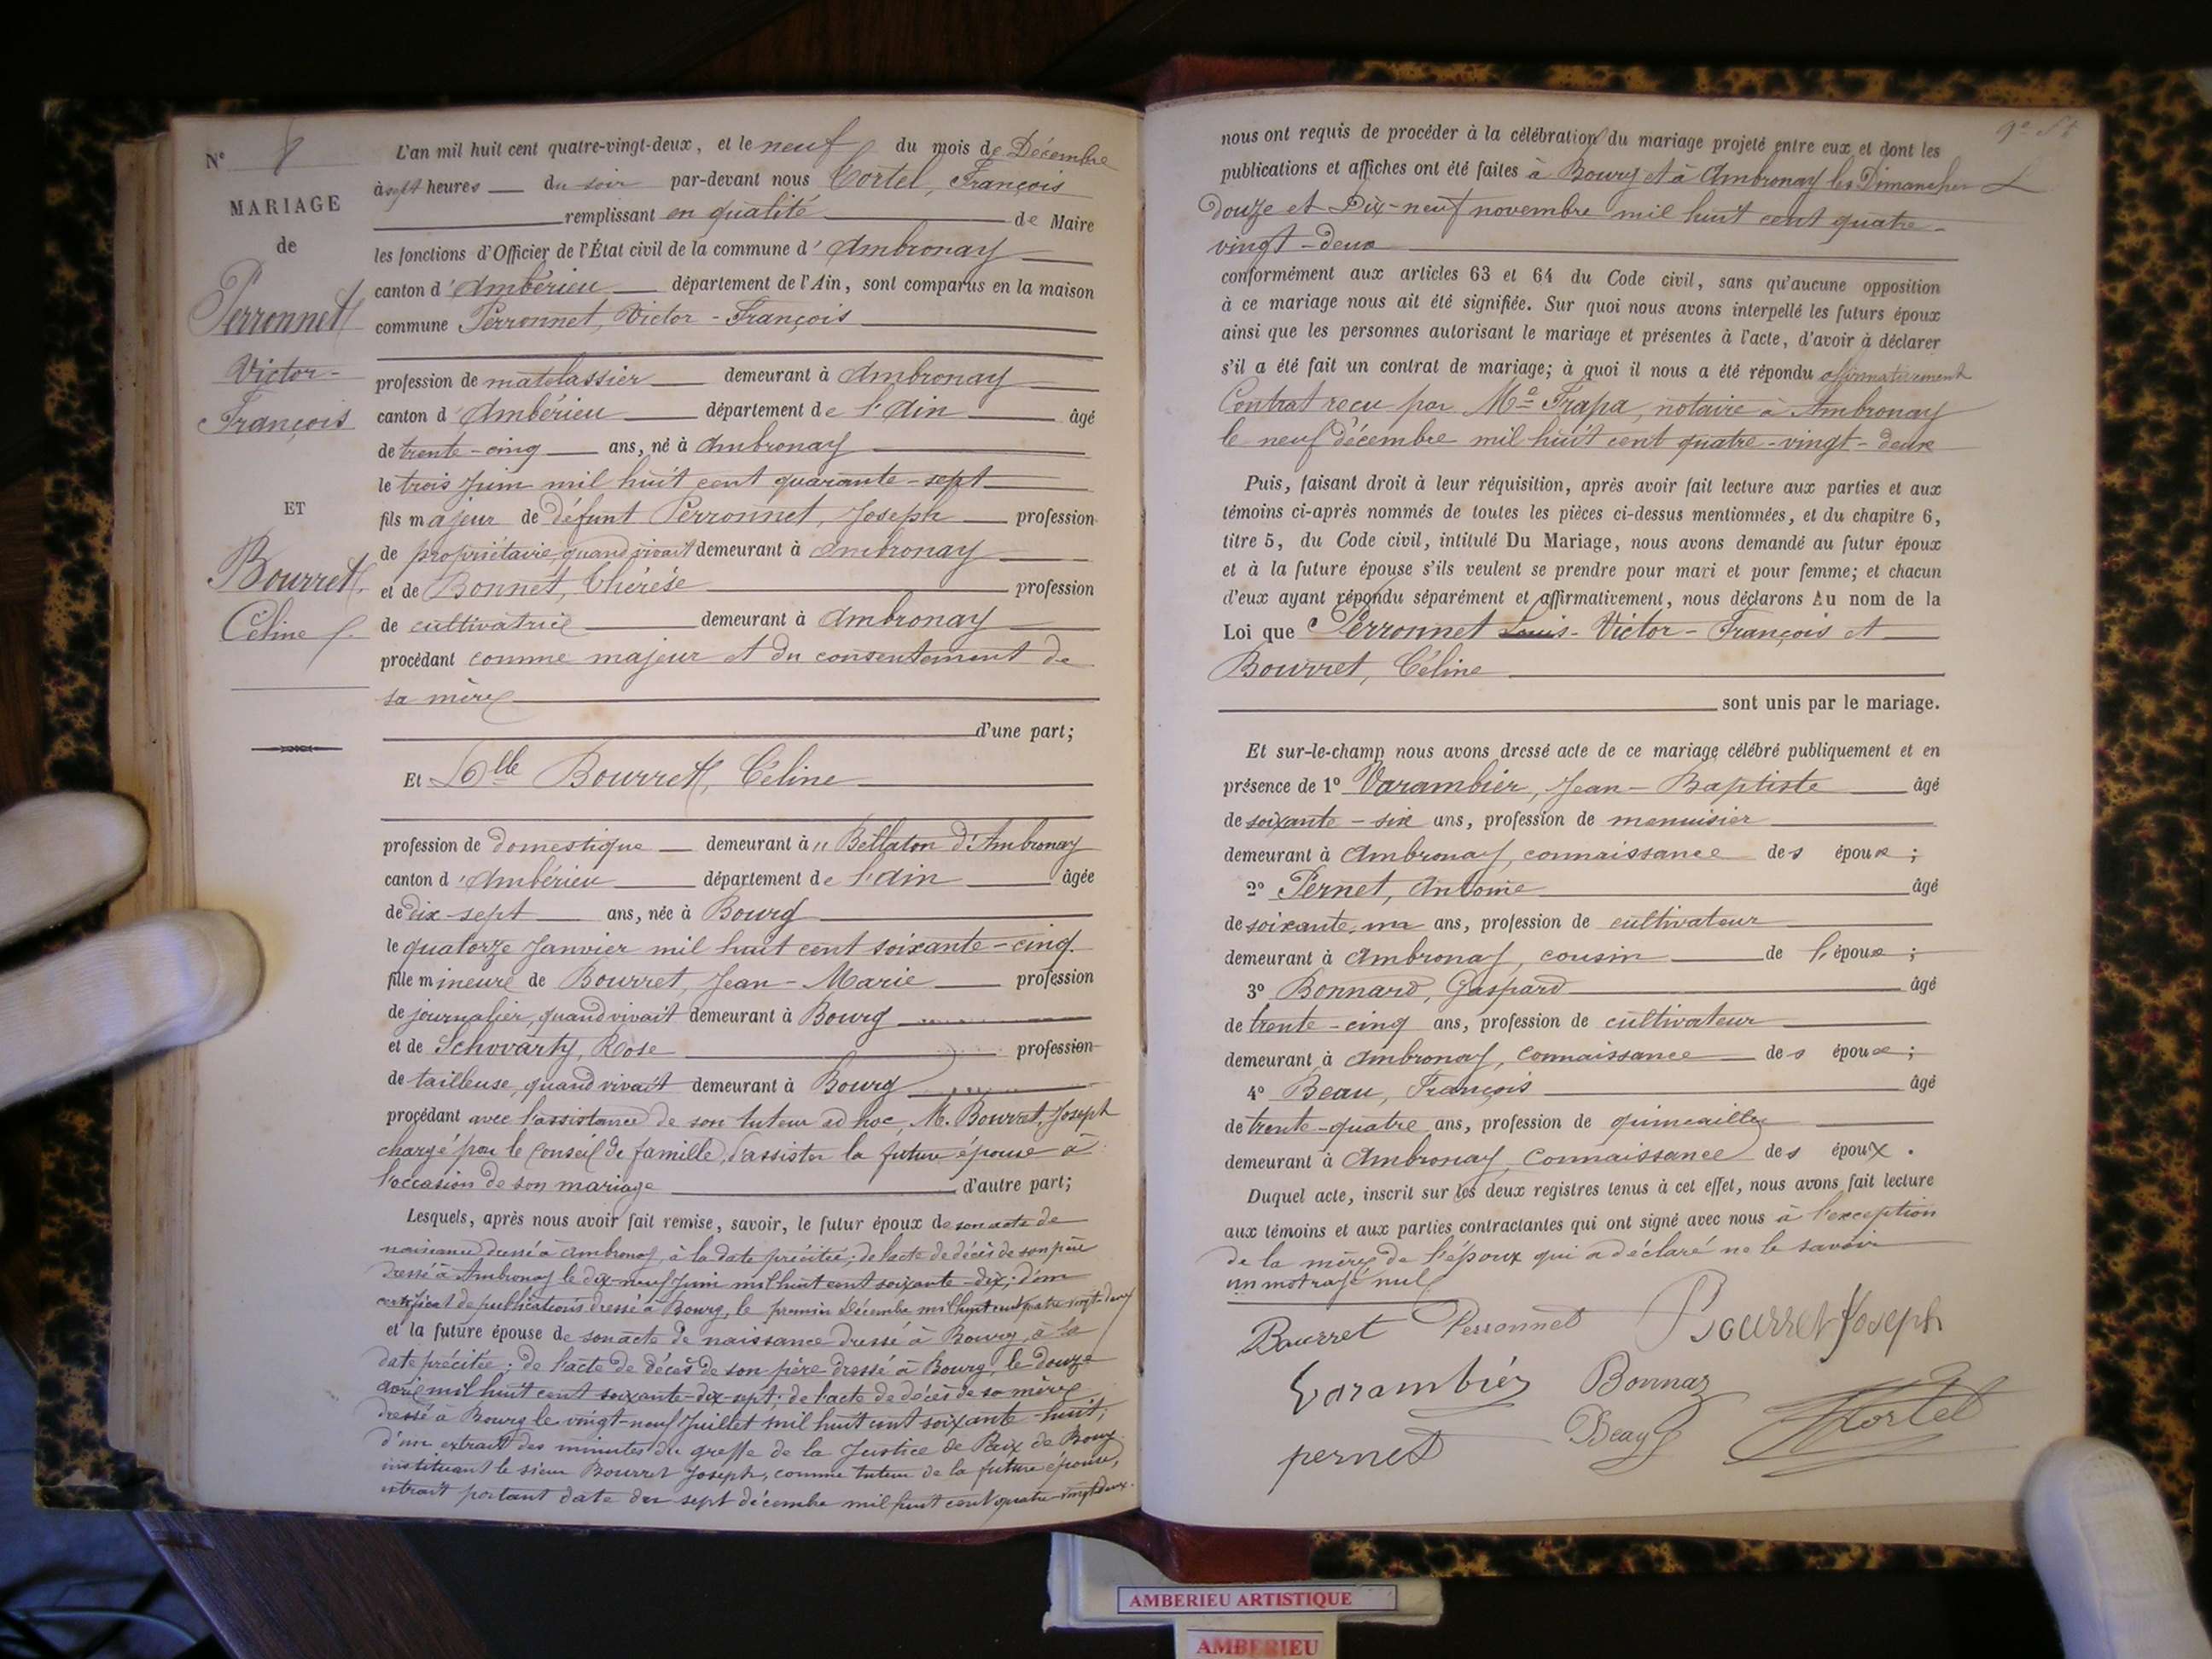 N° 8
MARIAGE
de
Perronnet
Victor-
François
ET
Bourret
Céline
L'an mil huit cent quatre-vingt-deux, et le neuf du mois de Décembre
à sept heures du soir par-devant nous Cortel, François
remplissant en qualité de Maire
les fonctions d'Officier de l'État civil de la commune d'Ambronay
canton d'Ambérieu département de l'Ain, sont comparus en la maison
commune Perronnet, Victor-François
profession de matelassier demeurant à Ambronay
canton d'Ambérieu département de l'Ain âgé
de trente-cinq ans, né à Ambronay
le trois Juin mil huit cent quarante-sept
fils majeur de défunt Perronnet, Joseph profession
de propriétaire, quand vivait demeurant à Ambronay
et de Bonnet, Thérèse profession
de cultivatrice demeurant à Ambronay
procédant comme majeur et du consentement de
sa mère
d'une part;
Et Dlle Bourret, Céline
profession de domestique demeurant à Bellaton d'Ambronay
canton d'Ambérieu département de l'Ain âgée
de dix-sept ans, née à Bourg
le quatorze Janvier mil huit cent soixante-cinq
fille mineure de Bourret, Jean-Marie profession
de journalier, quand vivait demeurant à Bourg
et de Schvvarty, Rose profession
de tailleuse, quand vivait demeurant à Bourg
procédant avec l'assistance de son tuteur ad hoc, M. Bourret, Joseph
chargé par le Conseil de famille, d'assister la future épouse à
l'occasion de son mariage d'autre part;
Lesquels, après nous avoir fait remise, savoir, le futur époux de son acte de
naissance dressé à Ambronay, à la date précitée; de l'acte de décès de son père
dressé à Ambronay le dix-neuf Juin mil huit cent soixante-dix; d'un
certificat de publications dressé à Bourg, le premier Décembre mil huit cent quatre-vingt-deux
et la future épouse de son acte de naissance dressé à Bourg, à la
date précitée; de l'acte de décès de son père dressé à Bourg, le douze
avril mil huit cent soixante-dix-sept; de l'acte de décès de sa mère
dressé à Bourg le vingt-neuf Juillet mil huit cent soixante-huit;
d'un extrait des minutes du greffe de la Justice de Paix de Bourg
instituant le sieur Bourret Joseph, comme tuteur de la future épouse,
extrait portant date du sept décembre mil huit cent quatre-vingt-deux.
nous ont requis de procéder à la célébration du mariage projeté entre eux et dont les
publications et affiches ont été faites à Bourg et à Ambronay les Dimanches
douze et Dix-neuf novembre mil huit cent quatre-
vingt-deux
conformément aux articles 63 et 64 du Code civil, sans qu'aucune opposition
à ce mariage nous ait été signifiée. Sur quoi nous avons interpellé les futurs époux
ainsi que les personnes autorisant le mariage et présentes à l'acte, d'avoir à déclarer
s'il a été fait un contrat de mariage; à quoi il nous a été répondu affirmativement
Contrat reçu par Me Trapa, notaire à Ambronay
le neuf décembre mil huit cent quatre-vingt-deux
Puis, faisant droit à leur réquisition, après avoir fait lecture aux parties et aux
témoins ci-après nommés de toutes les pièces ci-dessus mentionnées, et du chapitre 6,
titre 5, du Code civil, intitulé Du Mariage, nous avons demandé au futur époux
et à la future épouse s'ils veulent se prendre pour mari et pour femme; et chacun
d'eux ayant répondu séparément et affirmativement, nous déclarons Au nom de la
Loi que Perronnet Louis-Victor-François et
Bourret, Céline
sont unis par le mariage.
Et sur-le-champ nous avons dressé acte de ce mariage célébré publiquement et en
présence de 1° Varambier, Jean-Baptiste âgé
de soixante-six ans, profession de menuisier
demeurant à Ambronay, connaissance des époux;
2° Pernet, Antoine âgé
de soixante-un ans, profession de cultivateur
demeurant à Ambronay, cousin de l'époux;
3° Bonnard, Gaspard âgé
de trente-cinq ans, profession de cultivateur
demeurant à Ambronay, connaissance des époux;
4° Beau, François âgé
de trente-quatre ans, profession de quincailler
demeurant à Ambronay, connaissance des époux.
Duquel acte, inscrit sur les deux registres tenus à cet effet, nous avons fait lecture
aux témoins et aux parties contractantes qui ont signé avec nous à l'exception
de la mère de l'époux qui a déclaré ne le savoir
un mot rayé nul
Bourret Perronnet Bourret Joseph
Varambier Bonnaz
pernet Beau Cortel
AMBERIEU ARTISTIQUE
AMBERIEU